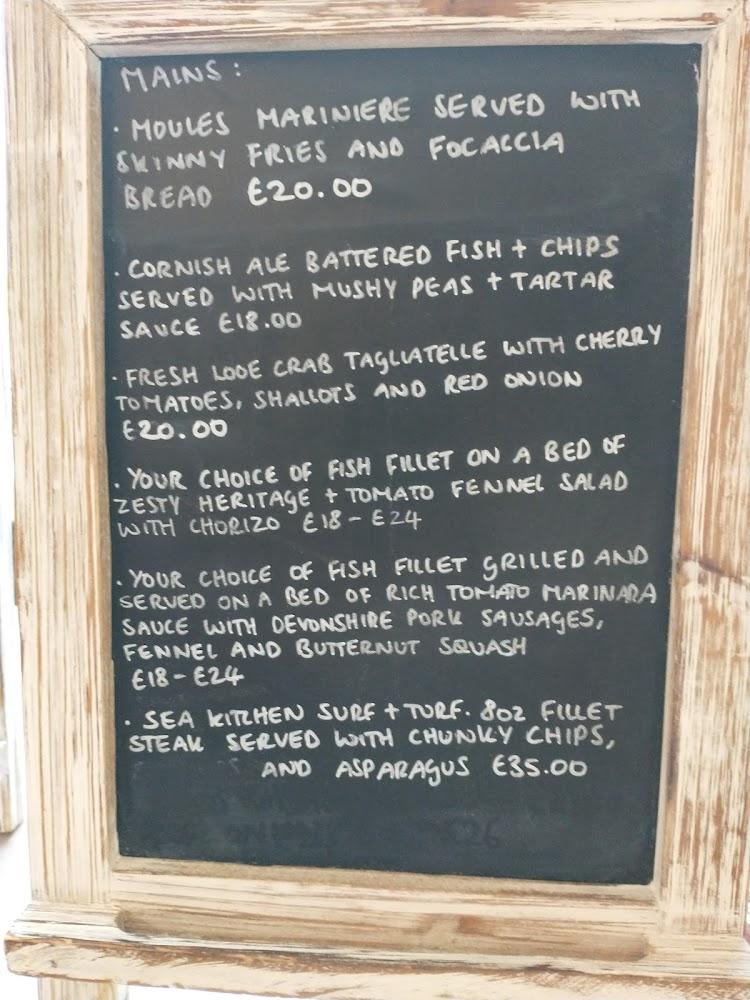 MAINS:
· MOULES MARINIERE SERVED WITH
SKINNY FRIES AND FOCACCIA
BREAD £20.00
· CORNISH ALE BATTERED FISH + CHIPS
SERVED WITH MUSHY PEAS + TARTAR
SAUCE £18.00
· FRESH LOOE CRAB TAGLIATELLE WITH CHERRY
TOMATOES, SHALLOTS AND RED ONION
£20.00
· YOUR CHOICE OF FISH FILLET ON A BED OF
ZESTY HERITAGE + TOMATO FENNEL SALAD
WITH CHORIZO £18 - £24
· YOUR CHOICE OF FISH FILLET GRILLED AND
SERVED ON A BED OF RICH TOMATO MARINARA
SAUCE WITH DEVONSHIRE PORK SAUSAGES,
FENNEL AND BUTTERNUT SQUASH
£18 - £24
· SEA KITCHEN SURF + TURF. 8oz FILLET
STEAK SERVED WITH CHUNKY CHIPS,
AND ASPARAGUS £35.00